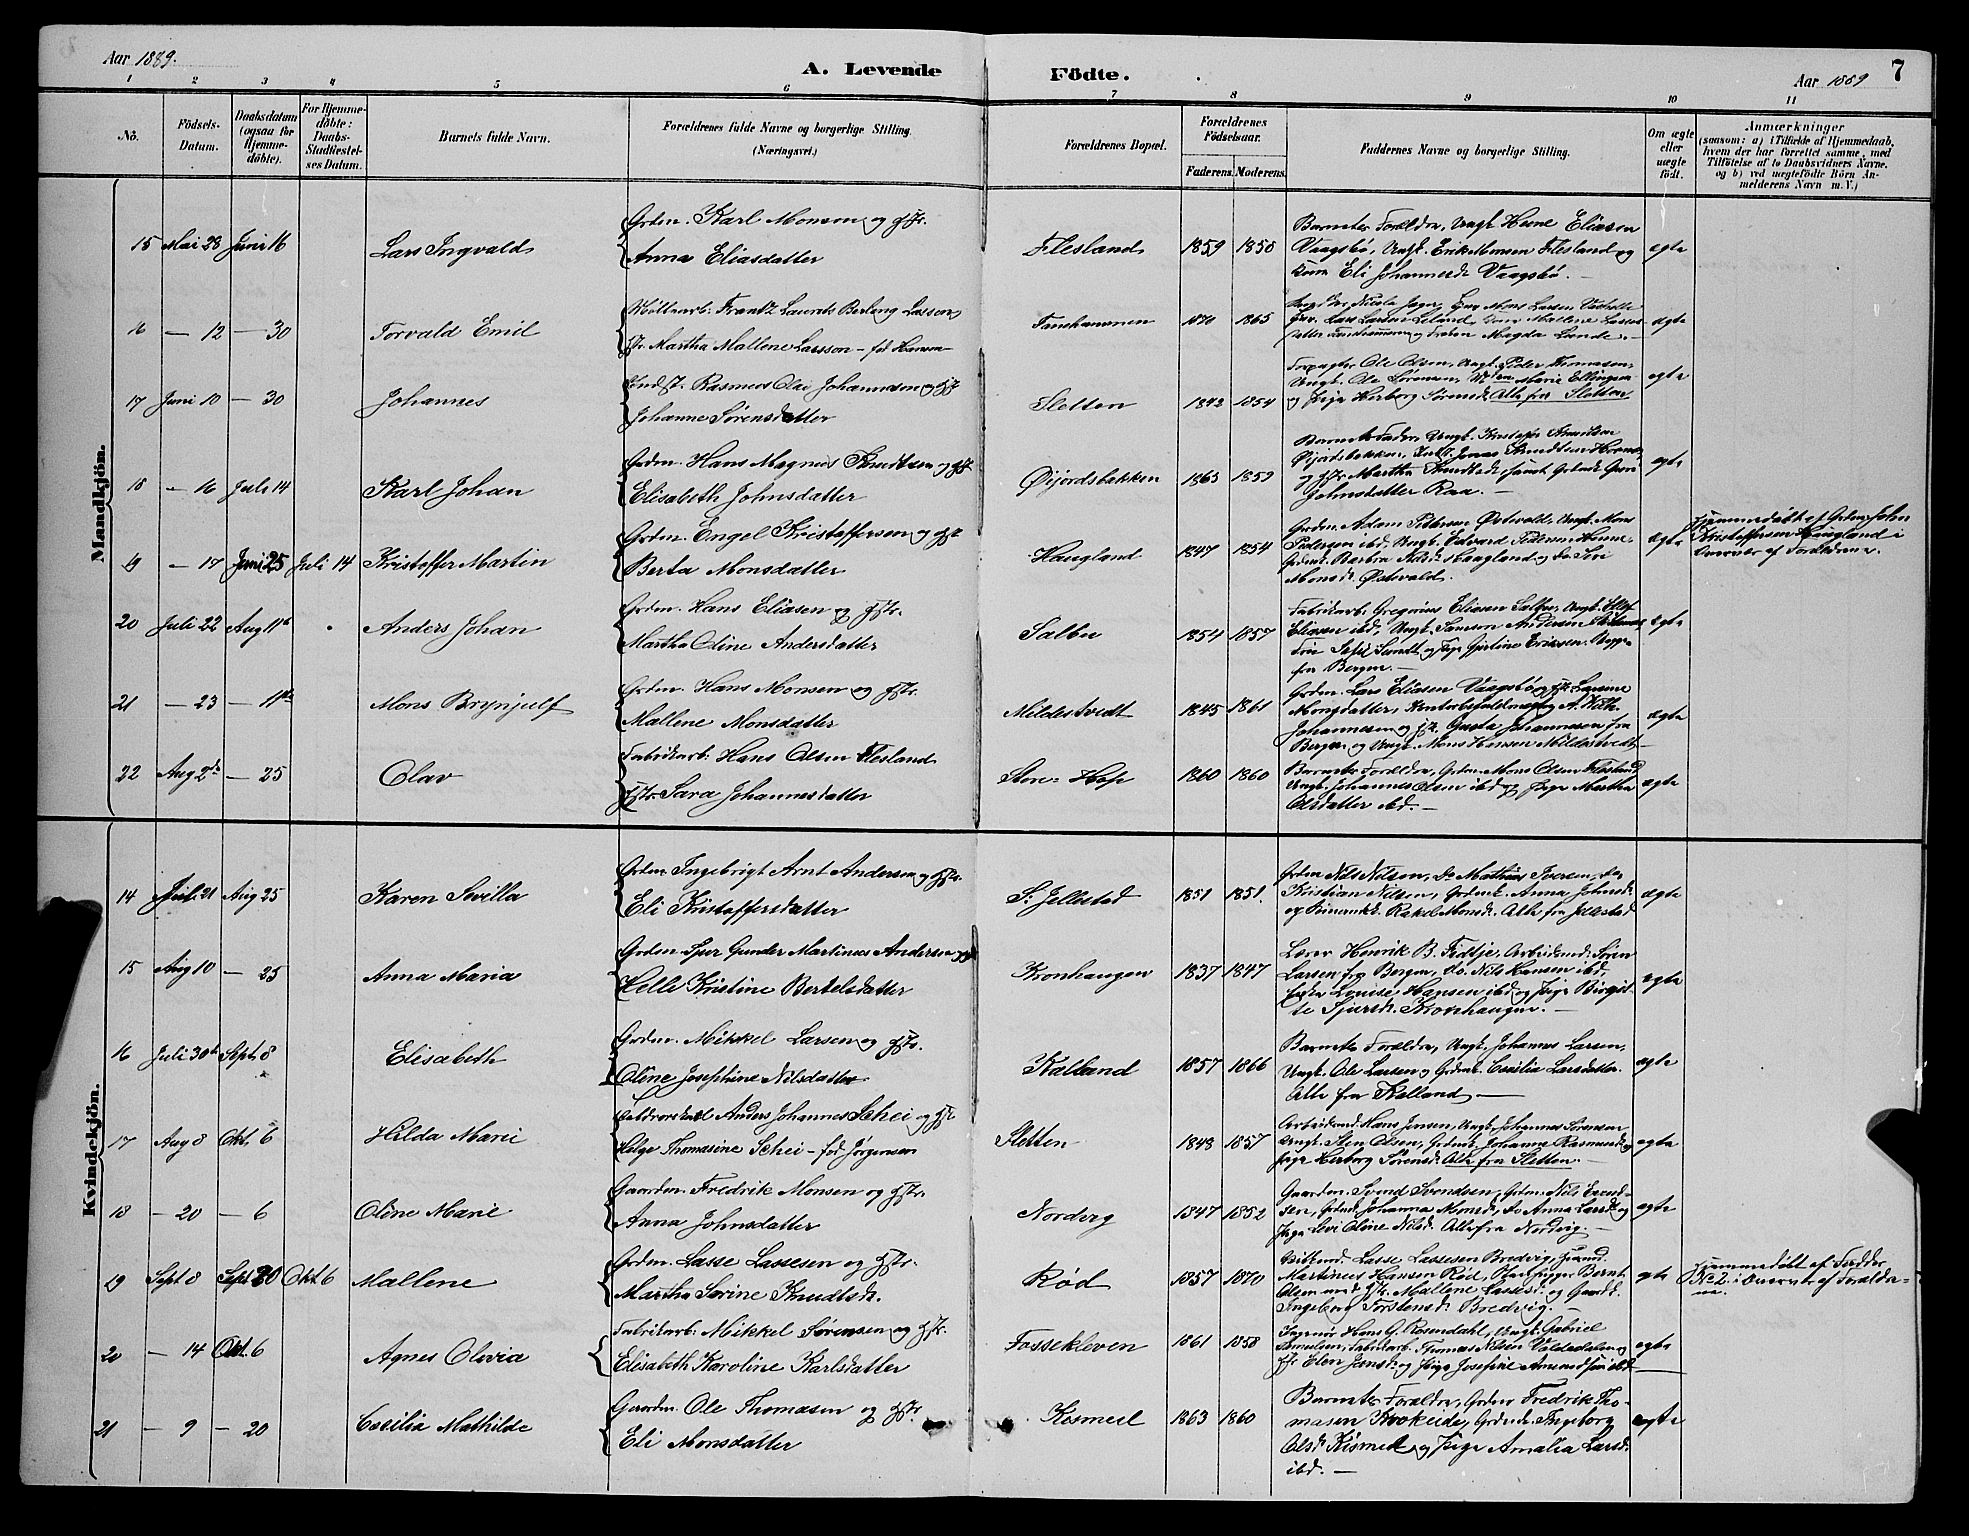 Aar 1889.
A. Levende Födte.
Aar 1889
7
1 2 3 4 5 6 7 8 9 10 11
Nö.
Födsels-Datum.
Daabsdatum (ogsaa for Hjemme-döbte).
For Hjemme-döbte: Daabs-Stadfæstel-ses Datum.
Barnets fulde Navn.
Forældrenes fulde Navne og borgerlige Stilling.
(Næringsvei.)
Forældrenes Bopæl.
Forældrenes Födselsaar.
Faderens. Moderens.
Faddernes Navne og borgerlige Stilling.
Om ægte eller uægte födt.
Anmærkninger
(saasom: a) i Tilfælde af Hjemmedaab, hvem der har forrettet samme, med Tilföielse af to Daabsvidners Navne. og b) ved uægtefödte Börn An-melderens Navn m. V.)
Mandkjön.
15 Mai 28 Juni 16 Lars Ingvald
Grdm. Karl Monsen og Hstr.
Anna Eliasdatter
Flesland 1859 1850
Barnets Forældre, Ungk. Eliasen
Vaagsbö, Ungk. Erik Monsen Flesland og
Eli Johannesd. Vaagsbö. —
ægte
16 — 12 — 30 Torvald Emil
Frantz Laurits Berlong Larsson
Martha Mallene Larsson — fød Hansen
1865
ægte
17 Juni 10 — 30 Johannes
Indst. Rasmus Olai Johannesen og Hstr
Johanne Sørensdatter
Sletten 1842 1854
Ole Olsen, Ungk. Peder Thomasen,
Ungk. Ole Sørensen, Marie Ellingsen
og Pige Herborg Sørensd. Alle fra Sletten
ægte
18 — 16 Juli 14 Karl Johan
Grdm. Hans Magnus Knudtsen og Hstr
Elisabeth Johnsdatter
Øijordsbækken 1863 1859
Barnets Fader, Ungk. Kristofer Knudtsen
Øijordsbækken, Jonas Knudtsen
og Martha Knudtsd. samt Grdmk. Guri
Johnsdatter Raa. —
ægte
19 — 17 Juni 25 Juli 14 Kristoffer Martin
Grdm. Engel Kristoffersen og Hstr
Berta Monsdatter
Haugland 1847 1854
Grdm. Adam Pedersen Østvold, Ungk. Mons
Pedersen ibd, Ungk. Edvard Pedersen
Grdmk. Barbra Nilsd. Haugland og
Monsd. Østvold.
ægte
Hjemmedøbt af Grdm. John
Kristoffersen Haugland i
Overvær af Forældrene.
20 Juli 22 Aug 11te Anders Johan
Grdm. Hans Eliasen og Hstr.
Martha Oline Andersdatter
Sælbu 1854 1857
Fabrikarb. Gregorius Eliasen Sælbu, Ungk.
Eliasen ibd, Ungk. Samson Andersen
Sundt og Pige Gjertine Eriksen.
fra Bergen. —
ægte
21 — 23 — 11te Mons Brynjulf
Grdm. Hans Monsen og Hstr.
Mallene Monsdatter
Mildestvedt 1845 1861
Grdm. Lars Eliasen Vaagsbö og Hstr.
Monsdatter, Kontorbefuldmægtig
Johannesen og Johannesen fra
Bergen og Ungk. Mons Hansen Mildestvedt
ægte
22 Aug 2de — 25 Olav
Fabrikarb. Hans Olsen Flesland
Hstr. Sara Johannesdatter
Store Hop 1860 1860
Barnets Forældre, Grdm. Mons Olsen Flesland
Ungk. Johannes Olsen ibd og Pige Martha
Olsdatter ibd. —
ægte
Kvindekjön.
14 Juli 21 Aug 25 Karen Sevilla
Grdm. Ingebrigt Arnt Andersen og Hstr.
Eli Kristoffersdatter
S. Jellestad 1851 1851.
Grdm. Nils Nilsen, Do Mathias Iversen, Do
Kristian Nilsen, Grdmk. Anna Johnsd.
og Rakel Monsd. Alle fra Jellestad
ægte
15 Aug 10 — 25 Anna Maria
Grdm. Sjur Gunder Martinus Andersen og
Helle Kristine Bertelsdatter
Kronhaugen 1837 1847
Lærer Henrik B. Fidtje, Arbeidsmd. Søren
Larsen fra Bergen, Do. Nils Hansen ibd,
Louise Hansen ibd og Pige Birgit-
te Sjursd. Kronhaugen. —
ægte
16 Juli 30te Sept. 8 Elisabeth
Grdm. Mikkel Larsen og Hstr.
Oline Josephine Nilsdatter
Kalland 1857 1866
Barnets Forældre, Ungk. Johannes Larsen,
Ungk. Ole Larsen og Grdmk. Cecilia Larsdatter.
Alle fra Kalland —
ægte
17 Aug 8 Okt. 6 Hilda Marie
Anders Johannes Schei og Hstr
Helge Thomasine Schei — fød Jørgensen
Sletten 1848 1857
Arbeidsmd. Hans Jensen, Ungk. Johannes Sørensen
Ungk. Sten Olsen, Grdmk. Johanne Rasmusd. og
Pige Herborg Sørensd. Alle fra Sletten. —
ægte
18 — 20 — 6 Oline Marie
Gaardm. Fredrik Monsen og Hstr.
Anna Johnsdatter
Nordvig 1847 1852
Gaardm. Svend Svendsen, Grdm. Nils Svend-
sen, Grdmk. Johanna Monsd, Do Anna Larsd. og
Pige Oline Nilsd. Alle fra Nordvig. —
ægte
19 Sept 8 Sept 20 Okt 6 Mallene
Grdm. Lasse Lassesen og Hstr.
Martha Serine Knudtsd.
Rød 1857 1870
Lasse Lassesen Bredvig,
Martinus Hansen Rød, Bernt
Olsen med Mallene Lassesd. og
Ingeborg Torstensd. Bredvig. —
ægte
Hjemmedøbt af Fadder
No 2. i Overvær af Forældre-
ne.
20 — 14 Okt. 6 Agnes Olivia
Fabrikarb. Mikkel Sørensen og Hstr.
Elisabeth Karoline Karlsdatter
Fossekleven 1861 1858
Ingeniør Hans G. Rosendahl, Ungk. Gabriel
Samuelsen, Fabrikarb. Thomas Nilsen og
Elen Jensd. og Pige Josefine
ægte
21 — 9 — 20 Cecilia Mathilde
Gaardm. Ole Thomasen og Hstr.
Eli Monsdatter
Kismeel 1863 1860
Barnets Forældre, Grdm Fredrik Tho-
masen Krokeide, Grdmk. Ingeborg
Olsd. Kismeel og Pige Amalia Larsd.
ibd. —
ægte